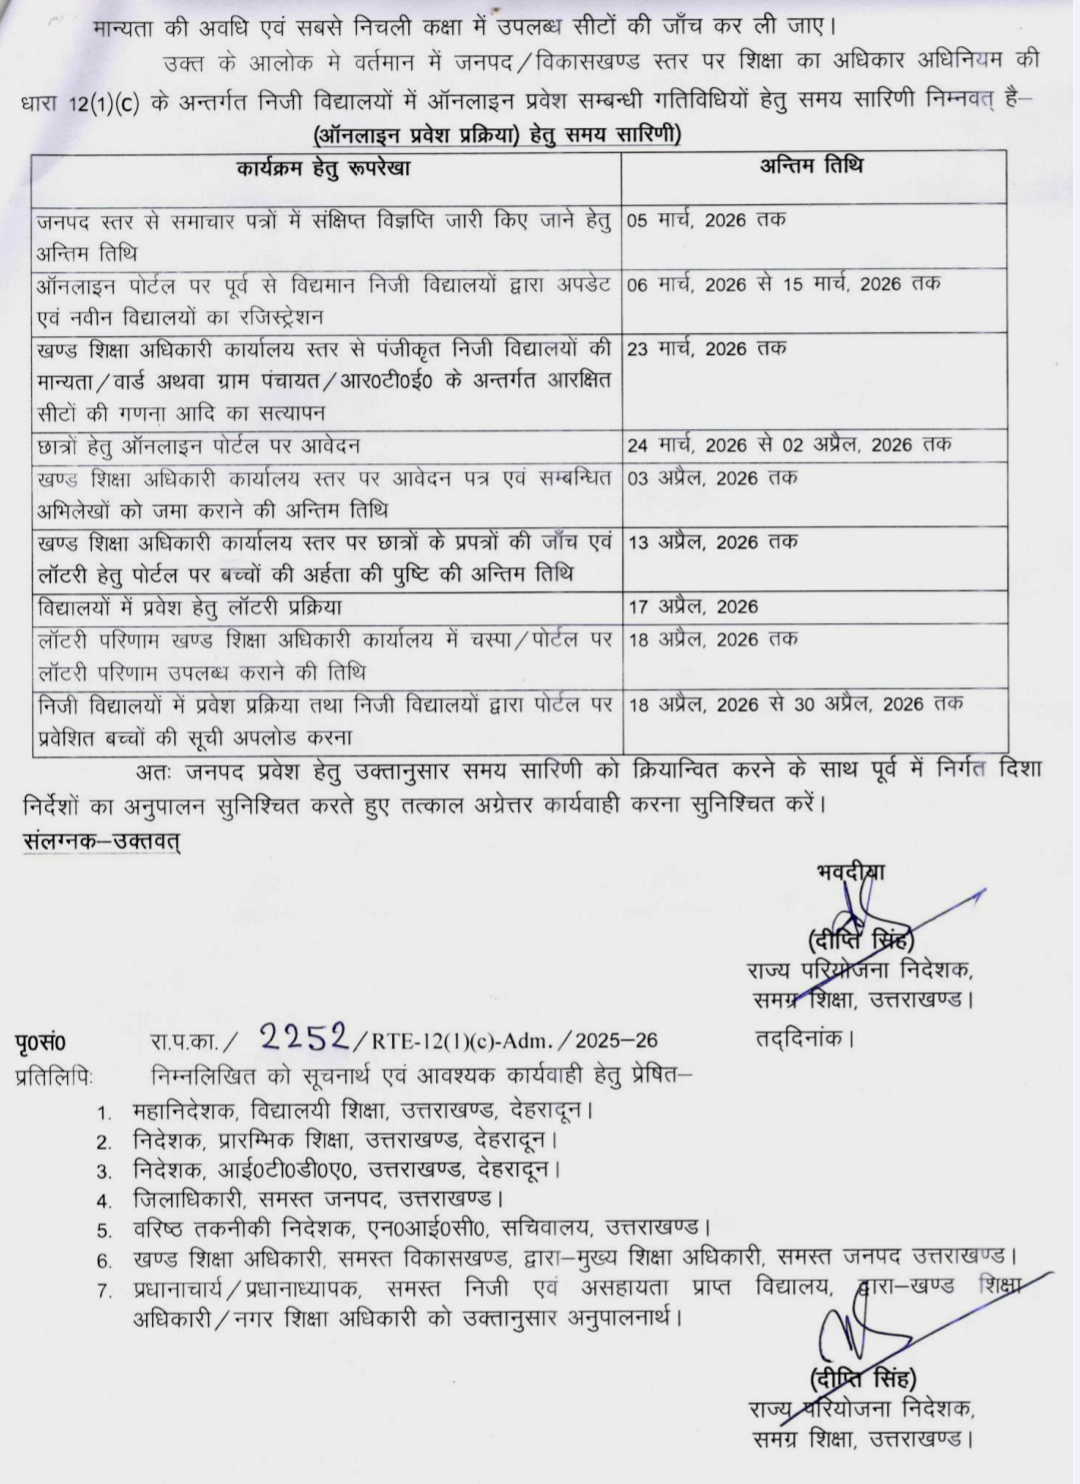 मान्यता की अवधि एवं सबसे निचली कक्षा में उपलब्ध सीटों की जाँच कर ली जाए।
उक्त के आलोक मे वर्तमान में जनपद/विकासखण्ड स्तर पर शिक्षा का अधिकार अधिनियम की
धारा 12(1)(c) के अन्तर्गत निजी विद्यालयों में ऑनलाइन प्रवेश सम्बन्धी गतिविधियों हेतु समय सारिणी निम्नवत् है–
(ऑनलाइन प्रवेश प्रक्रिया) हेतु समय सारिणी)
कार्यक्रम हेतु रूपरेखा अन्तिम तिथि
जनपद स्तर से समाचार पत्रों में संक्षिप्त विज्ञप्ति जारी किए जाने हेतु 05 मार्च, 2026 तक
अन्तिम तिथि
ऑनलाइन पोर्टल पर पूर्व से विद्यमान निजी विद्यालयों द्वारा अपडेट 06 मार्च, 2026 से 15 मार्च, 2026 तक
एवं नवीन विद्यालयों का रजिस्ट्रेशन
खण्ड शिक्षा अधिकारी कार्यालय स्तर से पंजीकृत निजी विद्यालयों की 23 मार्च, 2026 तक
मान्यता/वार्ड अथवा ग्राम पंचायत/आर0टी0ई0 के अन्तर्गत आरक्षित
सीटों की गणना आदि का सत्यापन
छात्रों हेतु ऑनलाइन पोर्टल पर आवेदन 24 मार्च, 2026 से 02 अप्रैल, 2026 तक
खण्ड शिक्षा अधिकारी कार्यालय स्तर पर आवेदन पत्र एवं सम्बन्धित 03 अप्रैल, 2026 तक
अभिलेखों को जमा कराने की अन्तिम तिथि
खण्ड शिक्षा अधिकारी कार्यालय स्तर पर छात्रों के प्रपत्रों की जाँच एवं 13 अप्रैल, 2026 तक
लॉटरी हेतु पोर्टल पर बच्चों की अर्हता की पुष्टि की अन्तिम तिथि
विद्यालयों में प्रवेश हेतु लॉटरी प्रक्रिया 17 अप्रैल, 2026
लॉटरी परिणाम खण्ड शिक्षा अधिकारी कार्यालय में चस्पा/पोर्टल पर 18 अप्रैल, 2026 तक
लॉटरी परिणाम उपलब्ध कराने की तिथि
निजी विद्यालयों में प्रवेश प्रक्रिया तथा निजी विद्यालयों द्वारा पोर्टल पर 18 अप्रैल, 2026 से 30 अप्रैल, 2026 तक
प्रवेशित बच्चों की सूची अपलोड करना
अतः जनपद प्रवेश हेतु उक्तानुसार समय सारिणी को क्रियान्वित करने के साथ पूर्व में निर्गत दिशा
निर्देशों का अनुपालन सुनिश्चित करते हुए तत्काल अग्रेत्तर कार्यवाही करना सुनिश्चित करें।
संलग्नक–उक्तवत्
भवदीया
(दीप्ति सिंह)
राज्य परियोजना निदेशक,
समग्र शिक्षा, उत्तराखण्ड।
पृ0सं0 रा.प.का./ 2252/RTE-12(1)(c)-Adm./2025–26 तद्दिनांक।
प्रतिलिपिः निम्नलिखित को सूचनार्थ एवं आवश्यक कार्यवाही हेतु प्रेषित–
1. महानिदेशक, विद्यालयी शिक्षा, उत्तराखण्ड, देहरादून।
2. निदेशक, प्रारम्भिक शिक्षा, उत्तराखण्ड, देहरादून।
3. निदेशक, आई0टी0डी0ए0, उत्तराखण्ड, देहरादून।
4. जिलाधिकारी, समस्त जनपद, उत्तराखण्ड।
5. वरिष्ठ तकनीकी निदेशक, एन0आई0सी0, सचिवालय, उत्तराखण्ड।
6. खण्ड शिक्षा अधिकारी, समस्त विकासखण्ड, द्वारा–मुख्य शिक्षा अधिकारी, समस्त जनपद उत्तराखण्ड।
7. प्रधानाचार्य/प्रधानाध्यापक, समस्त निजी एवं असहायता प्राप्त विद्यालय, द्वारा–खण्ड शिक्षा
अधिकारी/नगर शिक्षा अधिकारी को उक्तानुसार अनुपालनार्थ।
(दीप्ति सिंह)
राज्य परियोजना निदेशक,
समग्र शिक्षा, उत्तराखण्ड।